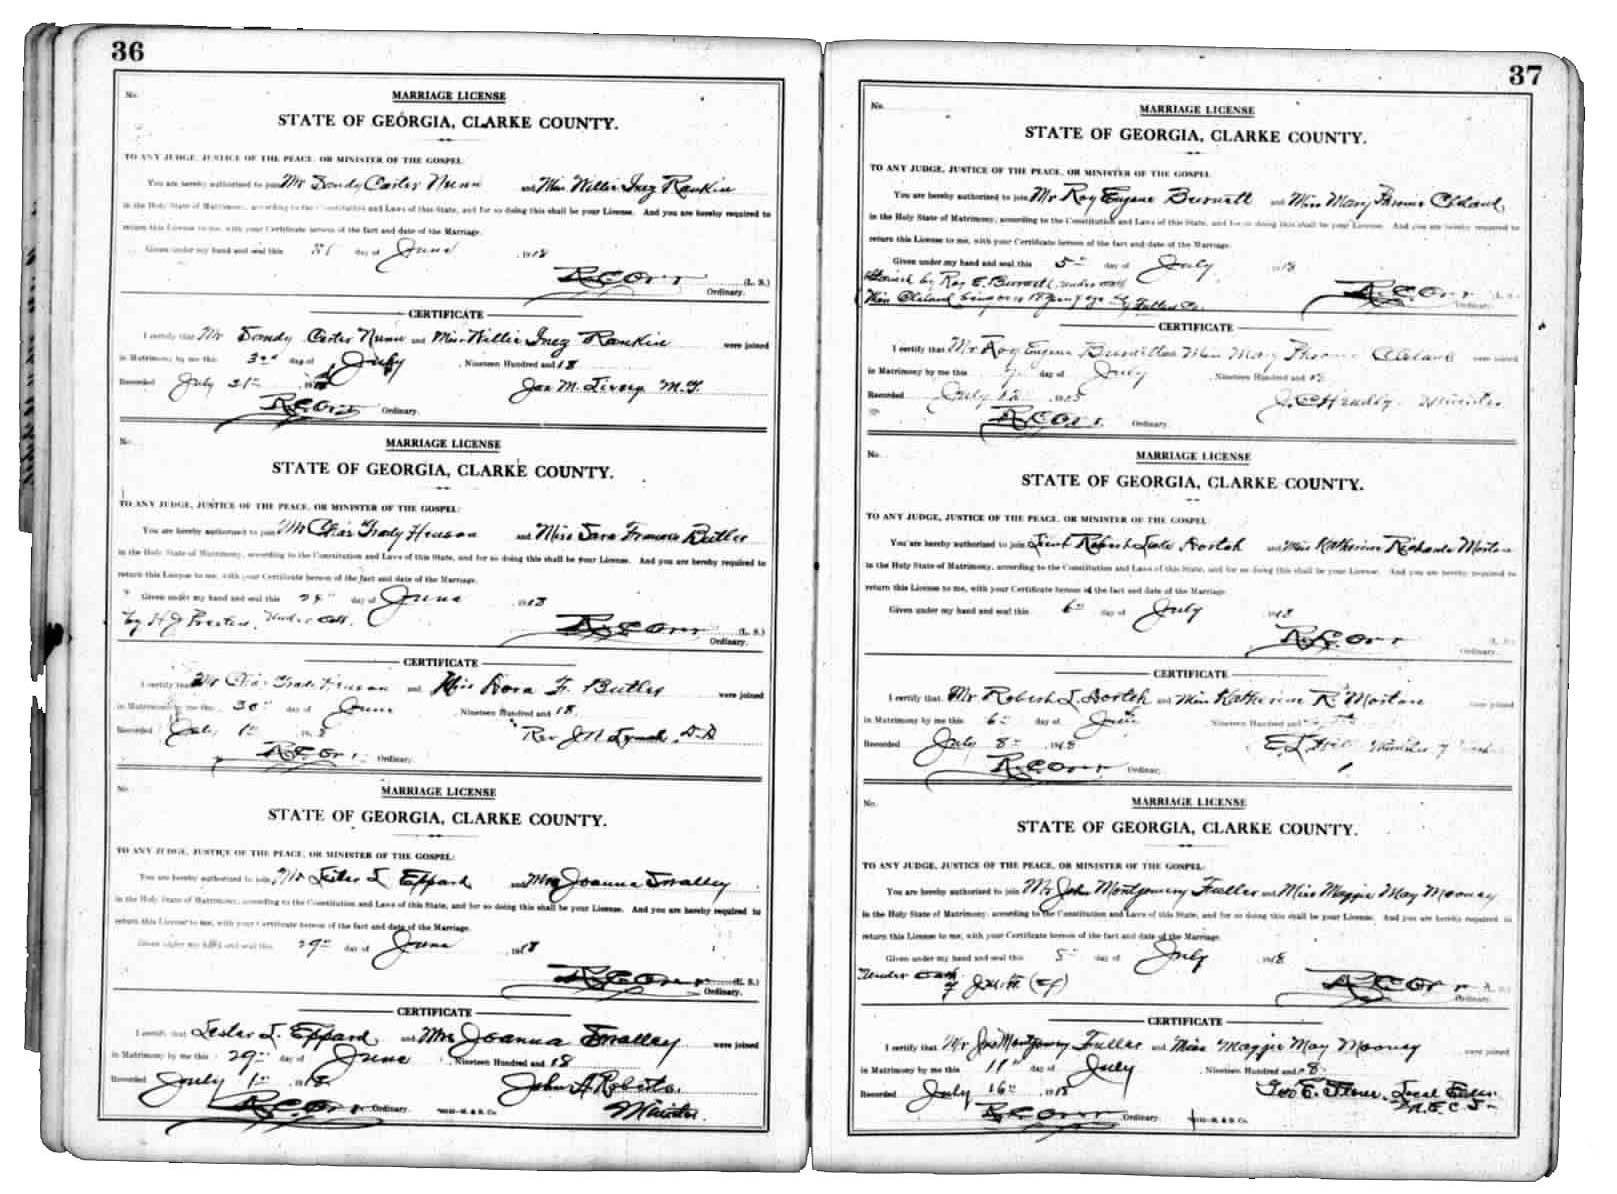 36
No.
MARRIAGE LICENSE
STATE OF GEORGIA, CLARKE COUNTY.
TO ANY JUDGE, JUSTICE OF THE PEACE, OR MINISTER OF THE GOSPEL:
You are hereby authorized to join Mr Carter Nunn and Miss Willie Inez Rankin
in the Holy State of Matrimony, according to the Constitution and Laws of this State, and for so doing this shall be your License. And you are hereby required to
return this License to me, with your Certificate hereon of the fact and date of the Marriage.
Given under my hand and seal this day of June 1918
R. C. Orr (L. S.)
Ordinary.
CERTIFICATE
I certify that Mr Carter Nunn and Miss Willie Inez Rankin were joined
in Matrimony by me this 3rd day of July, Nineteen Hundred and 18
Recorded July Jas M. M.G.
R. C. Orr Ordinary.
No.
MARRIAGE LICENSE
STATE OF GEORGIA, CLARKE COUNTY.
TO ANY JUDGE, JUSTICE OF THE PEACE, OR MINISTER OF THE GOSPEL:
You are hereby authorized to join Mr Chas Grady Henson and Miss Sara Frances Butler
in the Holy State of Matrimony, according to the Constitution and Laws of this State, and for so doing this shall be your License. And you are hereby required to
return this License to me, with your Certificate hereon of the fact and date of the Marriage.
Given under my hand and seal this day of June 1918
by H J under oath. R. C. Orr (L. S.)
Ordinary.
CERTIFICATE
I certify that Mr Chas Henson and Miss F. Butler were joined
in Matrimony by me this 30th day of June, Nineteen Hundred and 18.
Recorded July 1st Rev. J. N. Lynch D.D
R. C. Orr Ordinary.
No.
MARRIAGE LICENSE
STATE OF GEORGIA, CLARKE COUNTY.
TO ANY JUDGE, JUSTICE OF THE PEACE, OR MINISTER OF THE GOSPEL:
You are hereby authorized to join Mr Lester L Eppard and Mrs Joanna Smalley
in the Holy State of Matrimony, according to the Constitution and Laws of this State, and for so doing this shall be your License. And you are hereby required to
return this License to me, with your Certificate hereon of the fact and date of the Marriage.
Given under my hand and seal this 29th day of June 1918
R. C. Orr (L. S.)
Ordinary.
CERTIFICATE
I certify that Lester L. Eppard and Mrs Joanna Smalley were joined
in Matrimony by me this 29th day of June, Nineteen Hundred and 18
Recorded July 1st 1918 John A. Roberts.
R. C. Orr Ordinary. Minister.
37
No.
MARRIAGE LICENSE
STATE OF GEORGIA, CLARKE COUNTY.
TO ANY JUDGE, JUSTICE OF THE PEACE, OR MINISTER OF THE GOSPEL
You are hereby authorized to join Mr Roy Eugene Burnett and Miss Mary Cleland
in the Holy State of Matrimony, according to the Constitution and Laws of this State, and for so doing this shall be your License. And you are hereby required to
return this License to me, with your Certificate hereon of the fact and date of the Marriage.
Given under my hand and seal this 5th day of July 1918
by Roy E. Burnett, under oath
Miss Cleland being over 18 years of age Fulton Co. R. C. Orr
Ordinary.
CERTIFICATE
I certify that Mr Roy Eugene Burnett and Miss Mary Cleland were joined
in Matrimony by me this day of July, Nineteen Hundred and 18
Recorded July J. C. Minister
R. C. Orr. Ordinary.
No.
MARRIAGE LICENSE
STATE OF GEORGIA, CLARKE COUNTY.
TO ANY JUDGE, JUSTICE OF THE PEACE, OR MINISTER OF THE GOSPEL:
You are hereby authorized to join Lieut Robert and Miss Katherine Morton
in the Holy State of Matrimony, according to the Constitution and Laws of this State, and for so doing this shall be your License. And you are hereby required to
return this License to me, with your Certificate hereon of the fact and date of the Marriage.
Given under my hand and seal this 6th day of July 1918
R. C. Orr (L. S.)
Ordinary.
CERTIFICATE
I certify that Mr Robert L. and Miss Katherine R. Morton were joined
in Matrimony by me this 6th day of July Nineteen Hundred and
Recorded July 8th 1918 E. L. Hill Minister of
R. C. Orr Ordinary.
No.
MARRIAGE LICENSE
STATE OF GEORGIA, CLARKE COUNTY.
TO ANY JUDGE, JUSTICE OF THE PEACE, OR MINISTER OF THE GOSPEL:
You are hereby authorized to join Mr John Montgomery Fuller and Miss Maggie May Mooney
in the Holy State of Matrimony, according to the Constitution and Laws of this State, and for so doing this shall be your License. And you are hereby required to
return this License to me, with your Certificate hereon of the fact and date of the Marriage.
Given under my hand and seal this day of July 1918
Under oath R. C. Orr (L. S.)
Ordinary.
CERTIFICATE
I certify that Mr Jno Montgomery Fuller and Miss Maggie May Mooney were joined
in Matrimony by me this 11th day of July, Nineteen Hundred and 18
Recorded July 16th 1918 Geo E. Local Elder
R. C. Orr Ordinary.